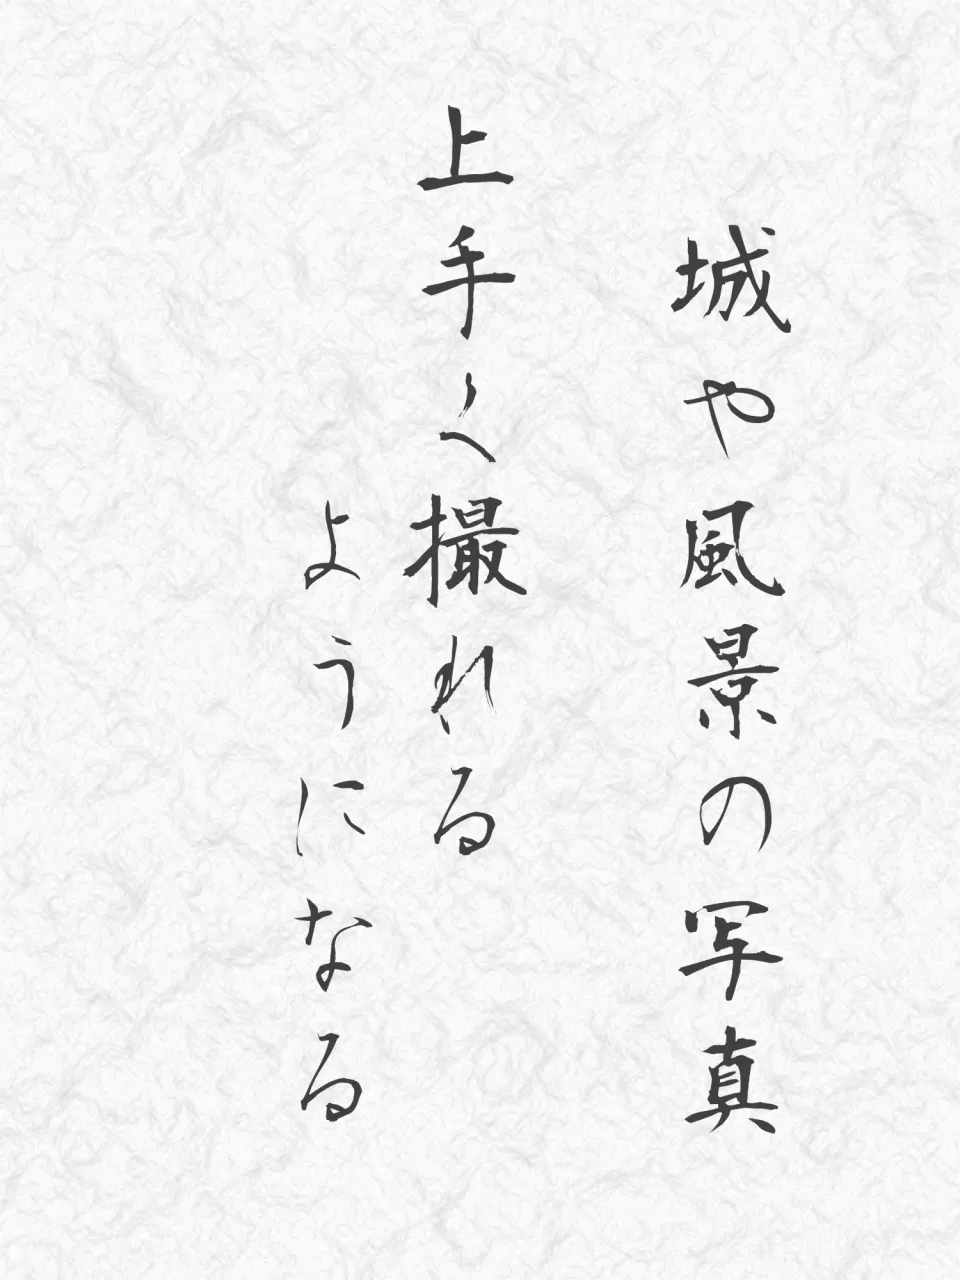 城や風景の写真
上手く撮れる
ようになる